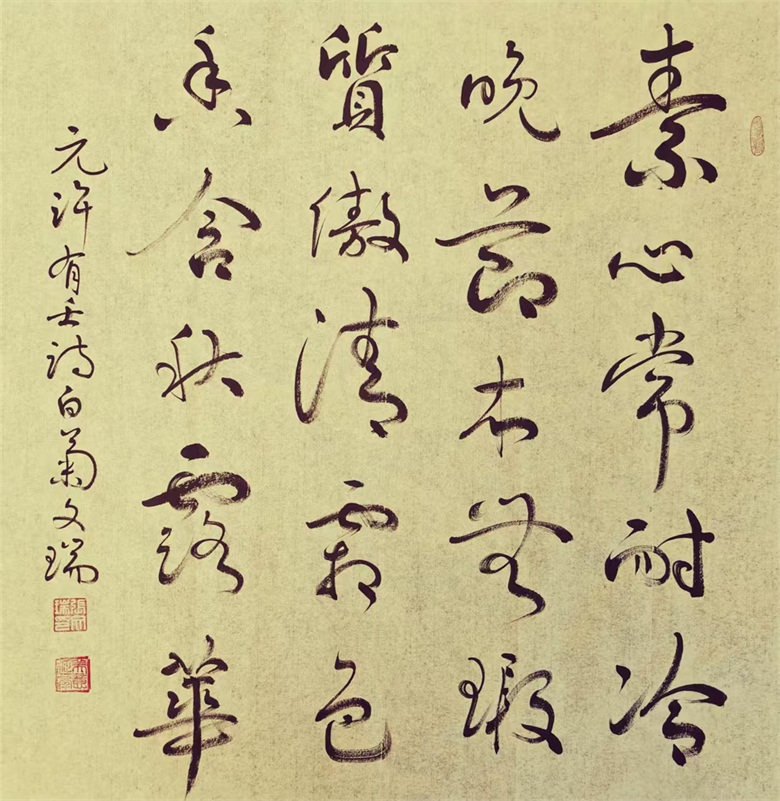 素心常耐冷
晚节本無瑕
質傲清霜色
香含秋露華
元许有壬诗白菊文瑞